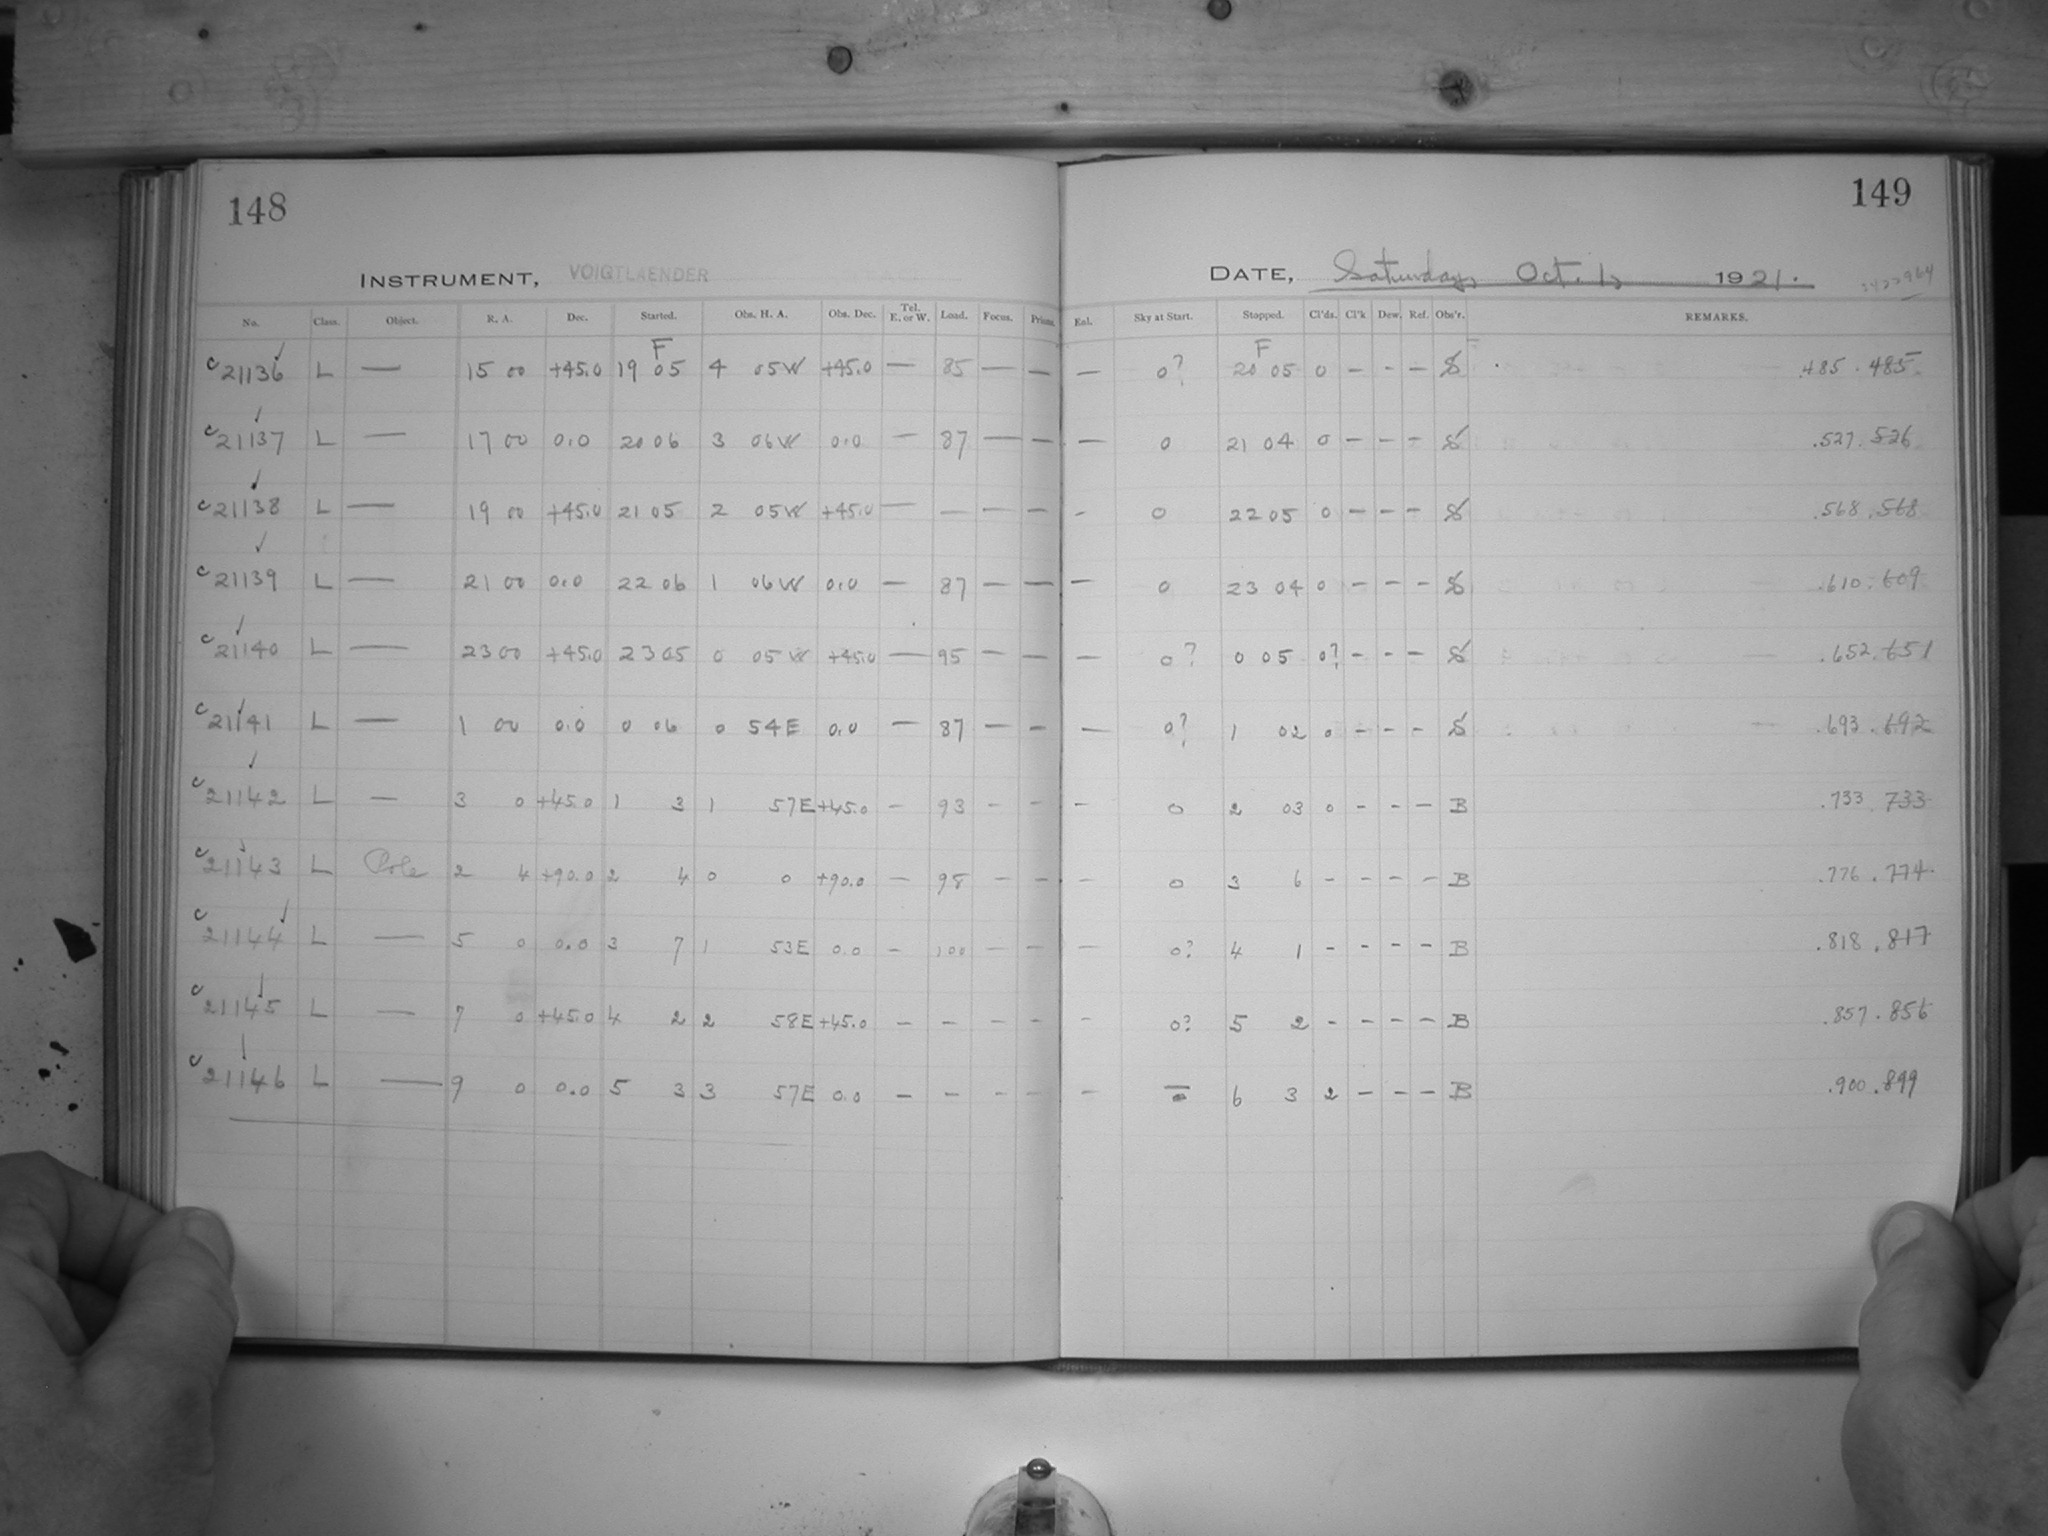 148
149
INSTRUMENT, VOIGTLAENDER
DATE, Saturday, Oct. 1, 1921.
No. Class. Object. R. A. Dec. Started. Obs. H. A. Obs. Dec. Tel. E. or W. Load. Focus. Prisms. Enl. Sky at Start. Stopped. Cl'ds. Cl'k Dew. Ref. Obs'r. REMARKS.
F F
c 21136 L — 15 00 +45.0 19 05 4 05W +45.0 — 85 — — — 0? 20 05 0 - - - S .485 .485
c 21137 L — 17 00 0.0 20 06 3 06W 0.0 — 87 — — — 0 21 04 0 - - - S .527 .526
c 21138 L — 19 00 +45.0 21 05 2 05W +45.0 — — — — - 0 22 05 0 - - - S .568 .568
c 21139 L — 21 00 0.0 22 06 1 06W 0.0 — 87 — — — 0 23 04 0 - - - S .610 .609
c 21140 L — 23 00 +45.0 23 05 0 05W +45.0 — 95 — — — 0? 0 05 0? - - - S .652 .651
c 21141 L — 1 00 0.0 0 06 0 54E 0.0 — 87 — - — 0? 1 02 0 - - - S .693 .692
c 21142 L — 3 0 +45.0 1 3 1 57E +45.0 - 93 - - - 0 2 03 0 - - - B .733 .733
c 21143 L Pole 2 4 +90.0 2 4 0 0 +90.0 - 98 - - - 0 3 6 - - - - B .776 .774
c 21144 L — 5 0 0.0 3 7 1 53E 0.0 - 100 - - - 0? 4 1 - - - - B .818 .817
c 21145 L — 7 0 +45.0 4 2 2 58E +45.0 - - - - - 0? 5 2 - - - - B .857 .856
c 21146 L — 9 0 0.0 5 3 3 57E 0.0 - - - - - 6 3 2 - - - B .900 .899